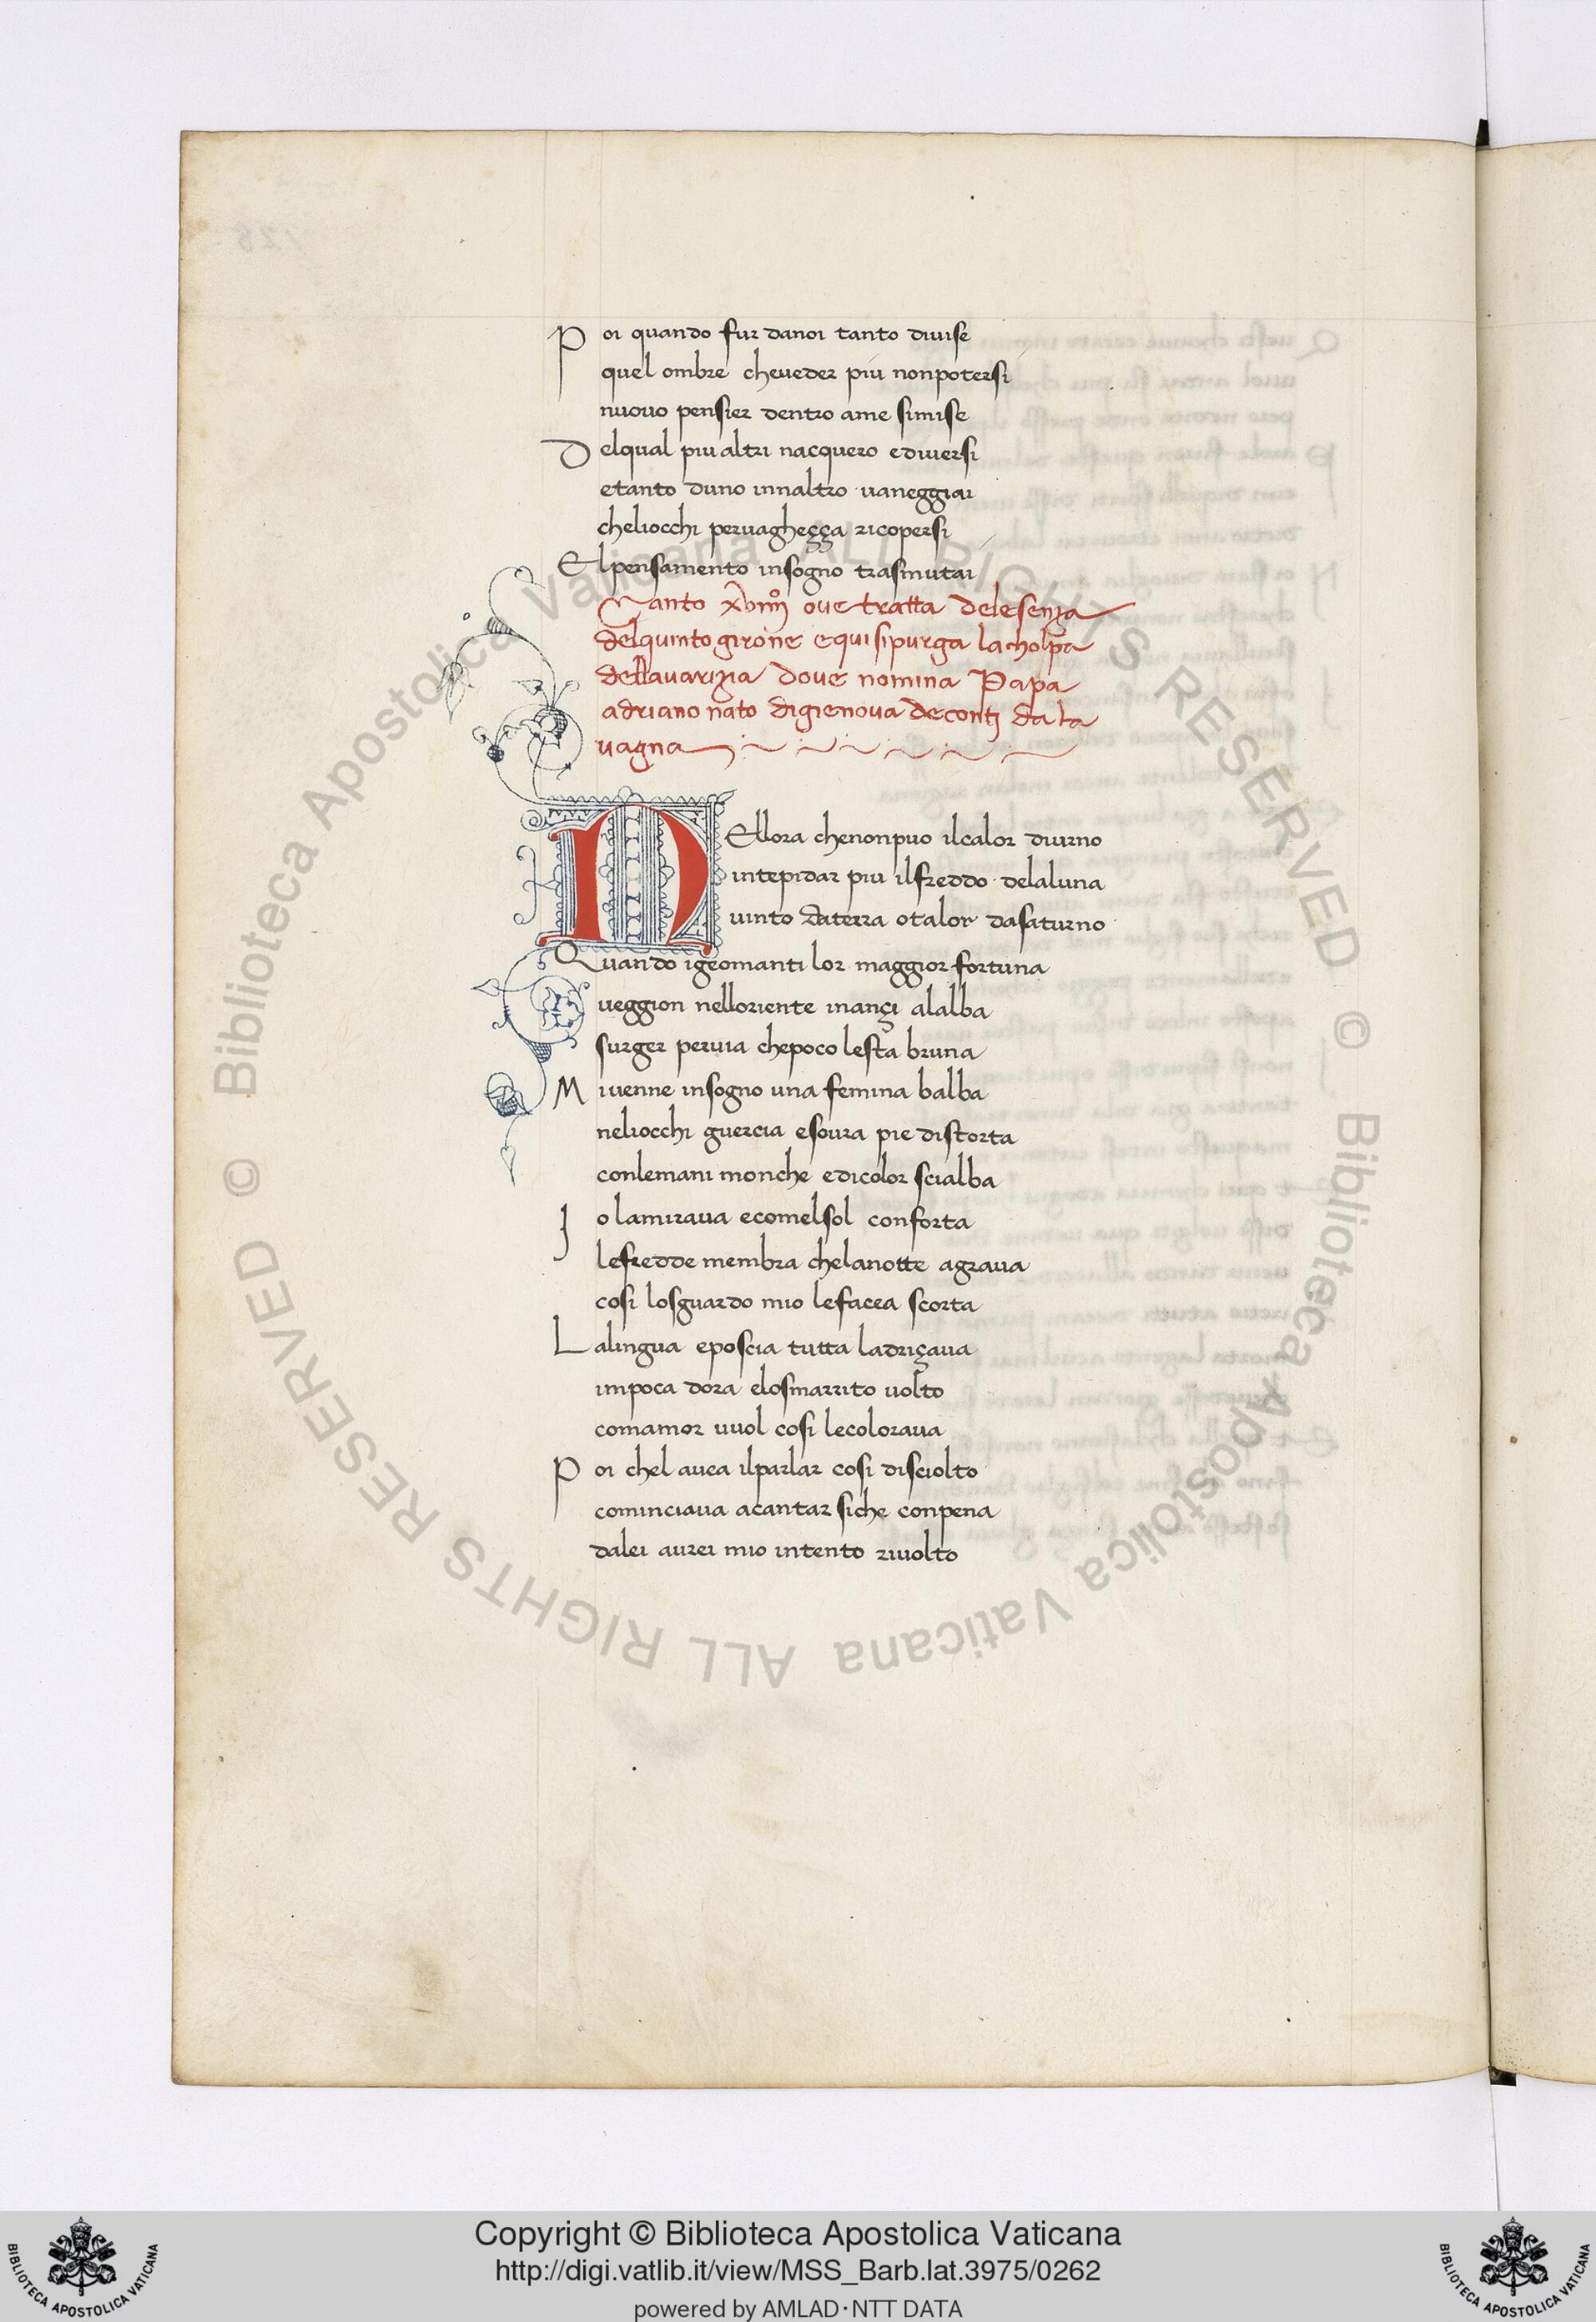 Poi quando fur danoi tanto divise
quel ombre cheveder piu nonpotersi
nuovo pensier dentro ame simise
Delqual piu altri nacquero ediversi
etanto duno innaltro vaneggiai
cheliocchi pervagheçça ricopersi
El pensamento insogno trasmutai
Canto xviiijº ove tratta delesenza
delquinto girone equi sipurga lacholpa
dellavarizia dove nomina Papa
adriano nato digienova deconti dala
vagna
Nellora chenonpuo ilcalor diurno
intepidar piu ilfreddo delaluna
vinto daterra otalor dasaturno
Quando igeomanti lor maggior fortuna
veggion nelloriente inançi alalba
surger pervia chepoco lesta bruna
Mivenne insogno una femina balba
neliocchi guercia esovra pie distorta
conlemani monche edicolor scialba
Jo lamirava ecomelsol conforta
lefredde membra chelanotte agrava
cosi losguardo mio lefacea scorta
Lalingua eposcia tutta ladriçava
impoca dora elosmarrito volto
comamor vuol cosi lecolorava
Poi chel avea ilparlar cosi disciolto
cominciava acantar siche conpena
dalei avrei mio intento rivolto
Copyright © Biblioteca Apostolica Vaticana
http://digi.vatlib.it/view/MSS_Barb.lat.3975/0262
powered by AMLAD·NTT DATA
BIBLIOTECA APOSTOLICA VATICANA
BIBLIOTECA APOSTOLICA VATICANA
© Biblioteca Apostolica Vaticana ALL RIGHTS RESERVED © Biblioteca Apostolica Vaticana ALL RIGHTS RESERVED